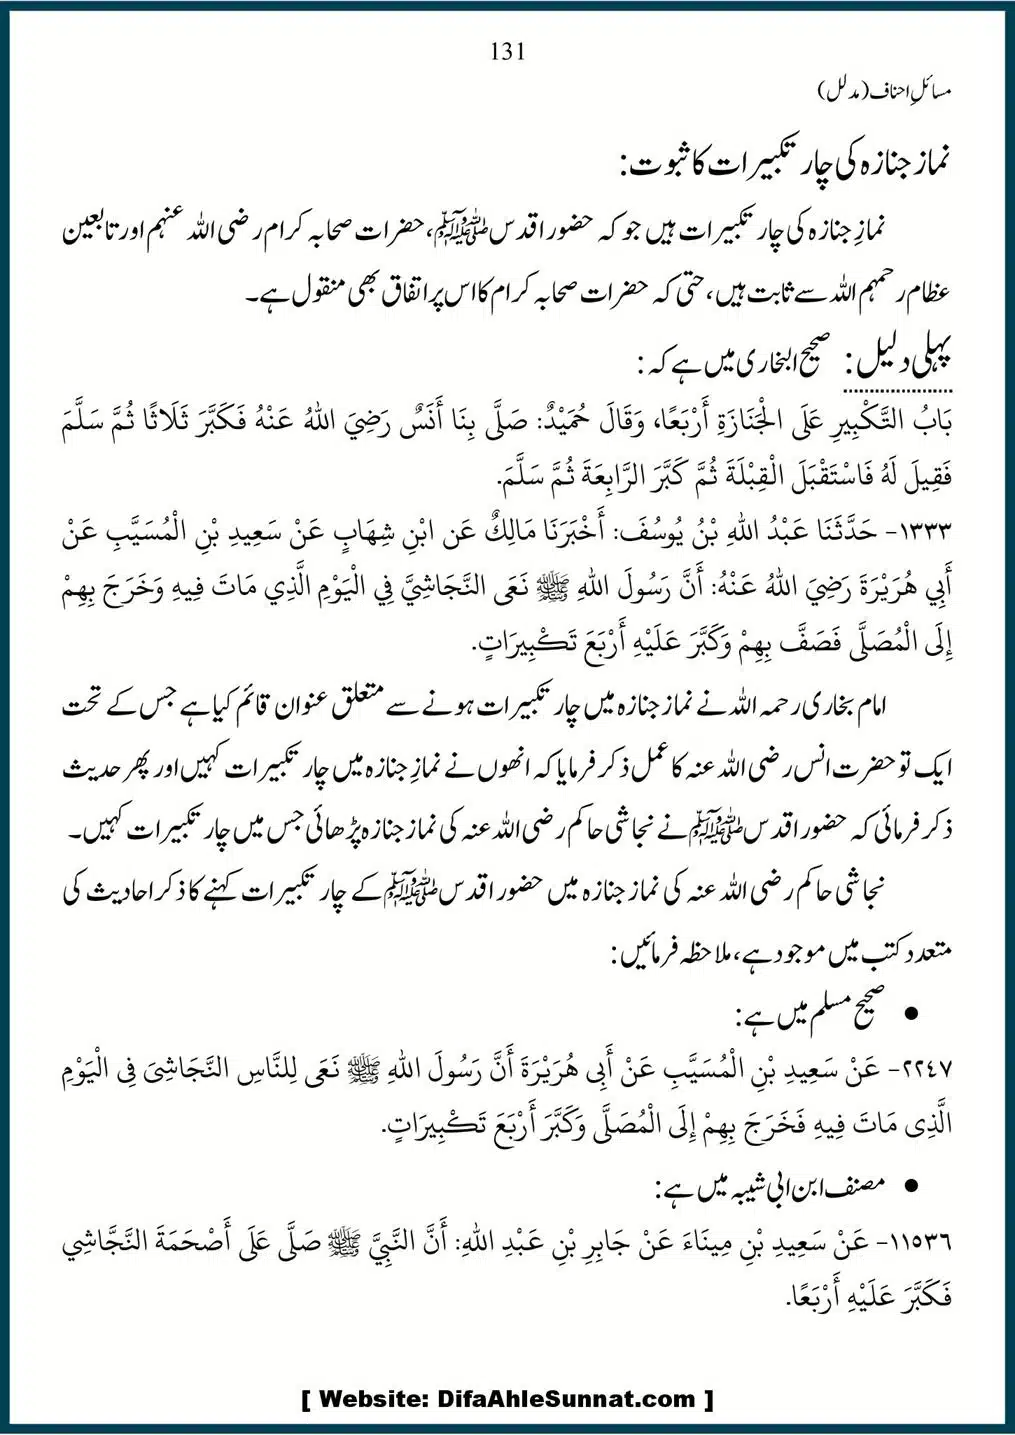 131
مسائلِ احناف (مدلل)
نماز جنازہ کی چار تکبیرات کا ثبوت:
نمازِ جنازہ کی چار تکبیرات ہیں جو کہ حضور اقدس ﷺ، حضرات صحابہ کرام رضی اللہ عنہم اور تابعین
عظام رحمہم اللہ سے ثابت ہیں، حتی کہ حضرات صحابہ کرام کا اس پر اتفاق بھی منقول ہے۔
پہلی دلیل: صحیح البخاری میں ہے کہ:
بَابُ التَّكْبِيرِ عَلَى الْجَنَازَةِ أَرْبَعًا، وَقَالَ حُمَيْدٌ: صَلَّى بِنَا أَنَسٌ رَضِيَ اللهُ عَنْهُ فَكَبَّرَ ثَلَاثًا ثُمَّ سَلَّمَ
فَقِيلَ لَهُ فَاسْتَقْبَلَ الْقِبْلَةَ ثُمَّ كَبَّرَ الرَّابِعَةَ ثُمَّ سَلَّمَ.
١٣٣٣- حَدَّثَنَا عَبْدُ اللهِ بْنُ يُوسُفَ: أَخْبَرَنَا مَالِكٌ عَن ابْنِ شِهَابٍ عَنْ سَعِيدِ بْنِ الْمُسَيَّبِ عَنْ
أَبِي هُرَيْرَةَ رَضِيَ اللهُ عَنْهُ: أَنَّ رَسُولَ اللهِ ﷺ نَعَى النَّجَاشِيَّ فِي الْيَوْمِ الَّذِي مَاتَ فِيهِ وَخَرَجَ بِهِمْ
إِلَى الْمُصَلَّى فَصَفَّ بِهِمْ وَكَبَّرَ عَلَيْهِ أَرْبَعَ تَكْبِيرَاتٍ.
امام بخاری رحمہ اللہ نے نماز جنازہ میں چار تکبیرات ہونے سے متعلق عنوان قائم کیا ہے جس کے تحت
ایک تو حضرت انس رضی اللہ عنہ کا عمل ذکر فرمایا کہ انھوں نے نمازِ جنازہ میں چار تکبیرات کہیں اور پھر حدیث
ذکر فرمائی کہ حضور اقدس ﷺ نے نجاشی حاکم رضی اللہ عنہ کی نماز جنازہ پڑھائی جس میں چار تکبیرات کہیں۔
نجاشی حاکم رضی اللہ عنہ کی نماز جنازہ میں حضور اقدس ﷺ کے چار تکبیرات کہنے کا ذکر احادیث کی
متعدد کتب میں موجود ہے، ملاحظہ فرمائیں:
• صحیح مسلم میں ہے:
٢٢٤٧- عَنْ سَعِيدِ بْنِ الْمُسَيَّبِ عَنْ أَبِى هُرَيْرَةَ أَنَّ رَسُولَ اللهِ ﷺ نَعَى لِلنَّاسِ النَّجَاشِىَ فِى الْيَوْمِ
الَّذِى مَاتَ فِيهِ فَخَرَجَ بِهِمْ إِلَى الْمُصَلَّى وَكَبَّرَ أَرْبَعَ تَكْبِيرَاتٍ.
• مصنف ابن ابی شیبہ میں ہے:
١١٥٣٦- عَنْ سَعِيدِ بْنِ مِينَاءَ عَنْ جَابِرِ بْنِ عَبْدِ اللهِ: أَنَّ النَّبِيَّ ﷺ صَلَّى عَلَى أَصْحَمَةَ النَّجَّاشِي
فَكَبَّرَ عَلَيْهِ أَرْبَعًا.
[ Website: DifaAhleSunnat.com ]